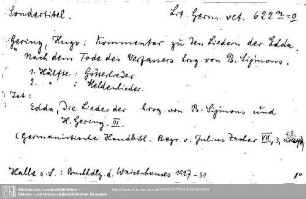 Sondertitel. Lit. Germ. vet. 622
Gering, Hugo: Kommentar zu den Liedern der Edda.
Nach dem Tode des Verfassers hrsg von B. Sijmons.
1. Hälfte: Götterlieder
2. " : Heldenlieder.
Edda, Die Lieder der hrsg. von B. Sijmons und
H. Gering. III
(Germanistische Handbibl. Begr. v. Julius Zacher VII, 3,
Halle a. S.: Buchhdlg. d. Waisenhauses 1927-31